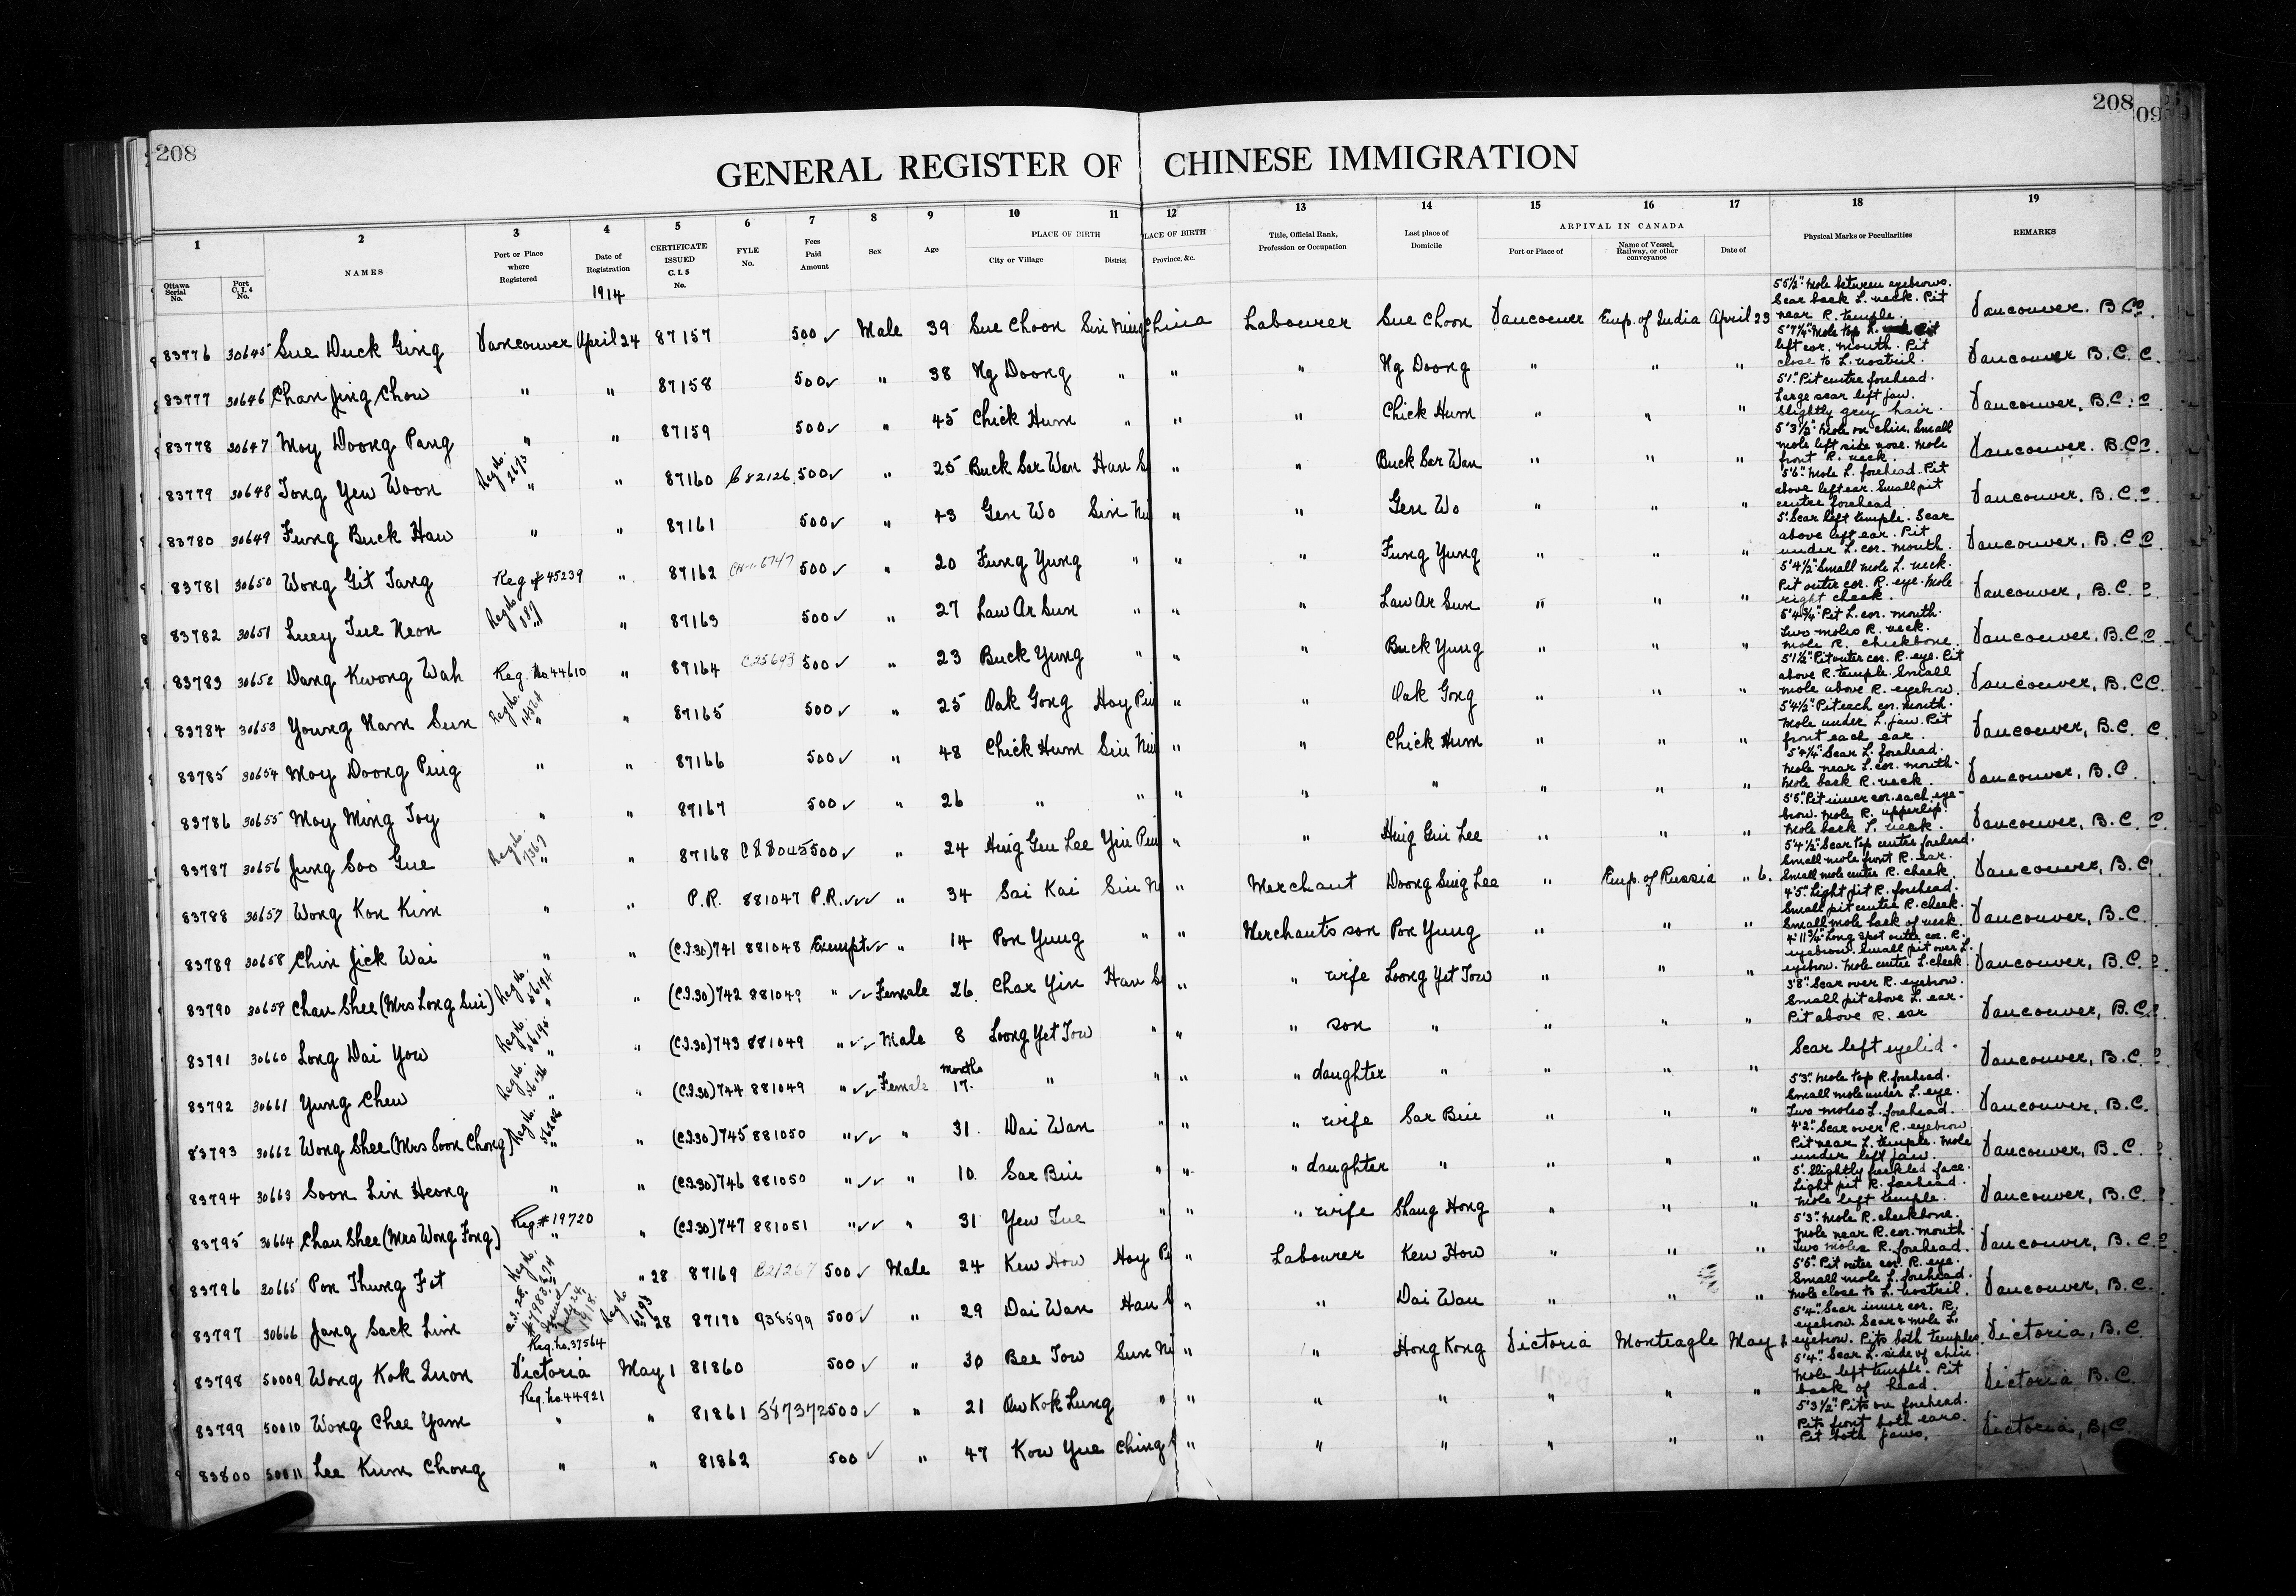 208
208
GENERAL REGISTER OF CHINESE IMMIGRATION
1 2 3 4 5 6 7 8 9 10 11 12 13 14 15 16 17 18 19
NAMES
Port or Place where Registered
Date of Registration
CERTIFICATE ISSUED C. I. 5 No.
FYLE No.
Fees Paid Amount
Sex
Age
PLACE OF BIRTH
City or Village
District
PLACE OF BIRTH
Province, &c.
Title, Official Rank, Profession or Occupation
Last place of Domicile
ARRIVAL IN CANADA
Port or Place of
Name of Vessel, Railway, or other conveyance
Date of
Physical Marks or Peculiarities
REMARKS
Ottawa Serial No.
Port C. I. 4 No.
1914
83776 30645 Sue Duck Ging Vancouver April 24 87157 500 ✓ Male 39 Sue Choon Sin Ning China Labourer Sue Choon Vancouver Emp. of India April 23 5'5½" Mole between eyebrows. Scar back L. neck. Pit near R. temple. Vancouver. B.C.
83777 30646 Chan Jing Chow " " 87158 500 ✓ " 38 Ng Doong " " " Ng Doong " " " 5'7¼" Mole top L. left cor. mouth. Pit close to L. nostril. Vancouver B.C.
83778 30647 Moy Doong Pang " " 87159 500 ✓ " 45 Chick Hum " " " Chick Hum " " " 5'1" Pit centre forehead. Large scar left jaw. Slightly grey hair. Vancouver, B.C.
83779 30648 Tong Yew Woon Reg. No. 2673 " " 87160 500 ✓ " 25 Buck Sar Wan Han S " " Buck Sar Wan " " " 5'3½" Mole on chin. Small mole left side nose. Mole front R. neck. Vancouver. B.C.
83780 30649 Fung Buck Haw " " 87161 500 ✓ " 43 Gen Wo Sin Ni " " Gen Wo " " " 5'6" Mole L. forehead. Pit above left ear. Small pit centre forehead. Vancouver, B.C.
83781 30650 Wong Git Tang Reg # 45239 " 87162 500 ✓ " 20 Fung Yung " " " Fung Yung " " " 5' Scar left temple. Scar above left ear. Pit under L. cor. mouth. Vancouver, B.C.
83782 30651 Luey Tue Neon Reg. No. " 87163 500 ✓ " 27 Law Ar Sun " " " Law Ar Sun " " " 5'4½" Small mole L. neck. Pit outer cor. R. eye. Mole right cheek. Vancouver, B.C.
83783 30652 Dang Kwong Wah Reg. No. 44610 " 87164 C25693 500 ✓ " 23 Buck Yung " " " Buck Yung " " " 5'4¾" Pit L. cor. mouth. Two moles R. neck. Mole R. cheekbone. Vancouver, B.C.
83784 30653 Young Nam Sun Reg. No. " " 87165 500 ✓ " 25 Oak Gong Hoy Pin " " Oak Gong " " " 5'1½" Pit outer cor. R. eye. Pit above R. temple. Small mole above R. eyebrow. Vancouver, B.C.
83785 30654 Moy Doong Ping " " 87166 500 ✓ " 48 Chick Hum Sin Nin " " Chick Hum " " " 5'4½" Pit each cor. mouth. Mole under L. jaw. Pit front each ear. Vancouver, B.C.
83786 30655 Moy Ming Toy " " 87167 500 ✓ " 26 " " " " " " " " 5'4¼" Scar L. forehead. Mole near L. cor. mouth. Mole back R. neck. Vancouver, B.C.
83787 30656 Jung Soo Gue Reg. No. 7367 " " 87168 C28045 500 ✓ " 24 Hing Gen Lee Yin Pin " " Hing Gin Lee " " " 5'5" Pit inner cor. each eyebrow. Mole R. upper lip. Mole back L. neck. Vancouver, B.C.
83788 30657 Wong Kon Kim " " P.R. 881047 P.R. ✓✓✓ " 34 Sai Kai Sin N " Merchant Doong Sing Lee " Emp. of Russia " 6. 5'4½" Scar top centre forehead. Small mole front R. ear. Small mole centre R. cheek. Vancouver, B.C.
83789 30658 Chin Jick Wai " " (C.I.30) 741 881048 Exempt ✓✓ " 14 Pon Yung " " Merchant's son Pon Yung " " " 4'5" Light pit R. forehead. Small pit centre R. cheek. Small mole back of neck. Vancouver, B.C.
83790 30659 Chan Shee (Mrs Long Sui) Reg. No. 56194 " " (C.I.30) 742 881049 " ✓✓ Female 26 Char Yin Han S " " wife Loong Yet Tow " " " 4'11¾" Long spot outer cor. R. eyebrow. Small pit over L. eyebrow. Mole centre L. cheek. Vancouver, B.C.
83791 30660 Long Dai Yow Reg. No. 56195 " " (C.I.30) 743 881049 " ✓✓ Male 8 Loong Yet Tow " " " son " " " " 3'8" Scar over R. eyebrow. Small pit above L. ear. Pit above R. ear Vancouver, B.C.
83792 30661 Yung Chew Reg. No. 56196 " " (C.I.30) 744 881049 " ✓✓ Female months 17. " " " " daughter " " " " Scar left eyelid. Vancouver, B.C.
83793 30662 Wong Shee (Mrs Soon Chong) Reg. No. " " (C.I.30) 745 881050 " ✓✓ " 31. Dai Wan " " " wife Sar Bin " " " 5'3" Mole top R. forehead. Small mole under L. eye. Two moles L. forehead. Vancouver, B.C.
83794 30663 Soon Lin Heong " " (C.I.30) 746 881050 " ✓✓ " 10. Sar Bin " " " daughter " " " " 4'2" Scar over R. eyebrow. Pit near L. temple. Mole under left jaw. Vancouver, B.C.
83795 30664 Chan Shee (Mrs Wong Fong) Reg. # 19720 " " (C.I.30) 747 881051 " ✓✓ " 31 Yew Tue " " " wife Shang Hong " " " 5' Slightly freckled face. Light pit R. forehead. Mole left temple. Vancouver, B.C.
83796 30665 Pon Thung Fat Reg. No. " 28 87169 500 ✓ Male 24 Kew How Hoy Pi " Labourer Kew How " " " 5'3" Mole R. cheekbone. Mole near R. cor. mouth Two moles R. forehead. Vancouver, B.C.
83797 30666 Jang Sack Lim C.I. 28. Issued July 24, 1918. Reg. No. " 28 87170 938599 500 ✓ " 29 Dai Wan Han S " " Dai Wan " " " 5'5" Pit outer cor. R. eye. Small mole L. forehead. Mole close to L. nostril. Vancouver, B.C.
83798 50009 Wong Kok Quon Reg. No. 37564 Victoria May 1 81860 500 ✓ " 30 Bee Tow Sun Ni " " Hong Kong Victoria Monteagle May 1 5'4" Scar inner cor. R. eyebrow. Scar & mole L. eyebrow. Pits both temples. Victoria, B.C.
83799 50010 Wong Chee Yam Reg. No. 44921 " " 81861 587372 500 ✓ " 21 Ow Kok Lung " " " " " " " 5'4" Scar L. side of chin. Mole left temple. Pit back of head. Victoria B.C.
83800 50011 Lee Kum Chong " " 81862 500 ✓ " 47 Kow Yue Ching " " " " " " 5'3½" Pits on forehead. Pits front both ears. Pit both jaws. Victoria, B.C.